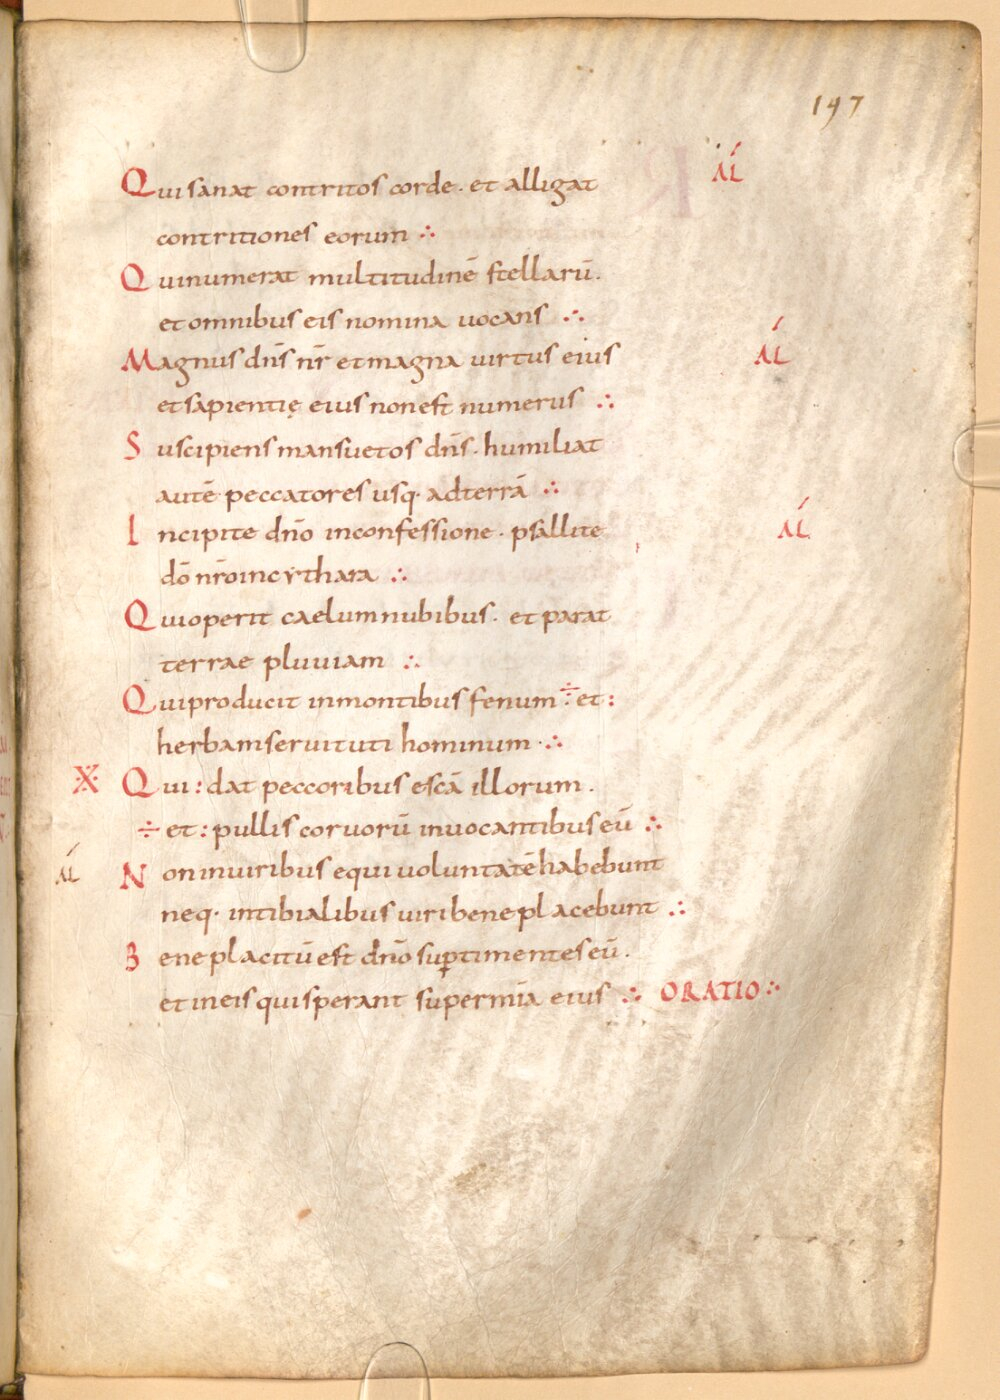 197
Qui sanat contritos corde · et alligat AĹ
contritiones eorum ∴
Qui numerat multitudinē stellarū .
et omnibus eis nomina uocans ∴
Magnus dn̄s nr̄ et magna uirtus eius AĹ
et sapientię eius non est numerus ∴
Suscipiens mansuetos dn̄s · humiliat
autē peccatores usq· ad terrā ∴
Incipite dn̄o in confessione · psallite AĹ
dō nr̄o in cythara ∴
Qui operit caelum nubibus · et parat
terrae pluuiam ∴
Qui producit in montibus fenum ÷ et :
herbam seruituti hominum ∴
※ Qui : dat peccoribus escā illorum .
÷ et : pullis coruorū inuocantibus eū ∴
AĹ Non in uiribus equi uoluntatē habebunt
neq· in tibialibus uiri beneplacebunt ∴
Beneplacitū est dn̄o sup̄ timentes eū .
et in eis qui sperant super mīa eius ∴ ORATIO ∴